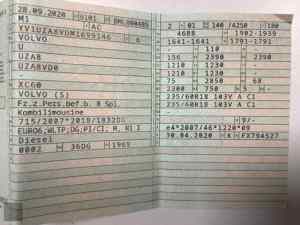 28.09.2020 0101
M1 AC
YV1UZA8VDM1699346 6
VOLVO
U
UZA8
UZA8VD0
-
XC60
VOLVO (S)
Fz.z.Pers.bef.b. 8 Spl.
Kombilimousine
715/2007*2018/1832DG
EURO6;WLTP;DG;PI/CI; M, N1 I
Diesel
0002 36DG 1969
2 01 140 /4250 180
4688 1902-1939
1641-1641 1791-1791
- 110 -
156 2390 2390
1210 1230 -
1210 1230 -
75 2850 68
2300 750 5 -
235/60R18 103V A CI
235/60R18 103V A CI
-
9/-
e4*2007/46*1220*09
30.04.2020 K FX794527